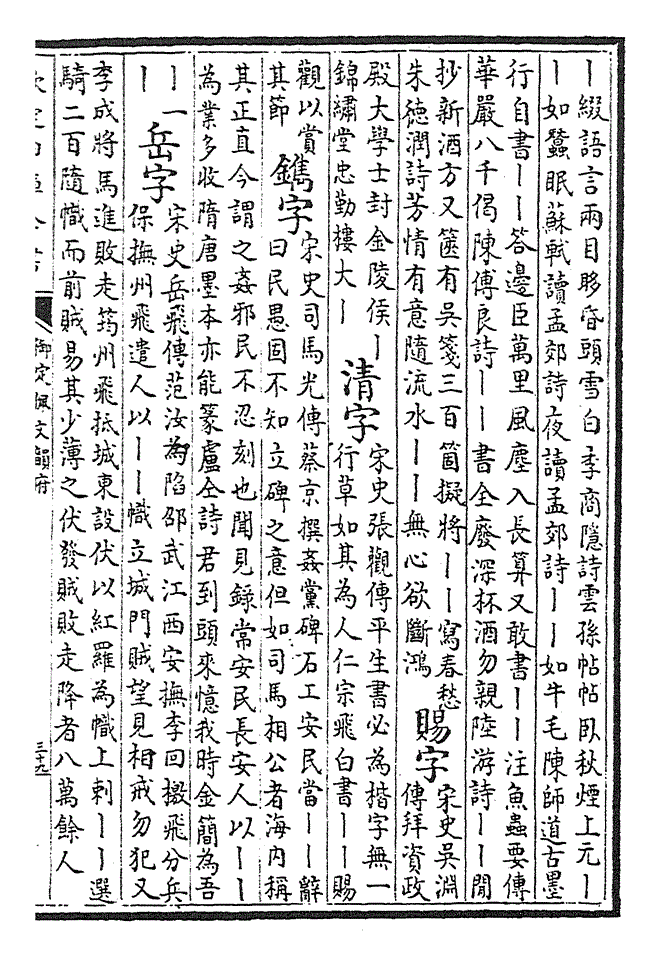 丨綴語言兩目眵昏頭雪白李商隱詩雲孫帖帖臥秋煙上元丨
丨如蠶眠蘇軾讀孟郊詩夜讀孟郊詩丨丨如牛毛陳師道古墨
行自書丨丨答邊臣萬里風塵入長算又敢書丨丨注魚蟲要傳
華嚴八千偈陳傅良詩丨丨書全廢深杯酒勿親陸游詩丨丨閒
抄新酒方又篋有吳箋三百箇擬將丨丨寫春愁
朱德潤詩芳情有意隨流水丨丨無心欲斷鴻
賜字
宋史吳淵
傳拜資政
殿大學士封金陵侯丨
錦繡堂忠勤樓大丨
清字
宋史張觀傳平生書必為楷字無一
行草如其為人仁宗飛白書丨丨賜
觀以賞
其節
鐫字
宋史司馬光傳蔡京撰姦黨碑石工安民當丨丨辭
曰民愚固不知立碑之意但如司馬相公者海內稱
其正直今謂之姦邪民不忍刻也聞見錄常安民長安人以丨丨
為業多收隋唐墨本亦能篆盧仝詩君到頭來憶我時金簡為吾
丨一
丨
岳字
宋史岳飛傳范汝為陷邵武江西安撫李回檄飛分兵
保撫州飛遣人以丨丨幟立城門賊望見相戒勿犯又
李成將馬進敗走筠州飛抵城東設伏以紅羅為幟上刺丨丨選
騎二百隨幟而前賊易其少薄之伏發賊敗走降者八萬餘人
欽定四庫全書
御定佩文韻府
三十九